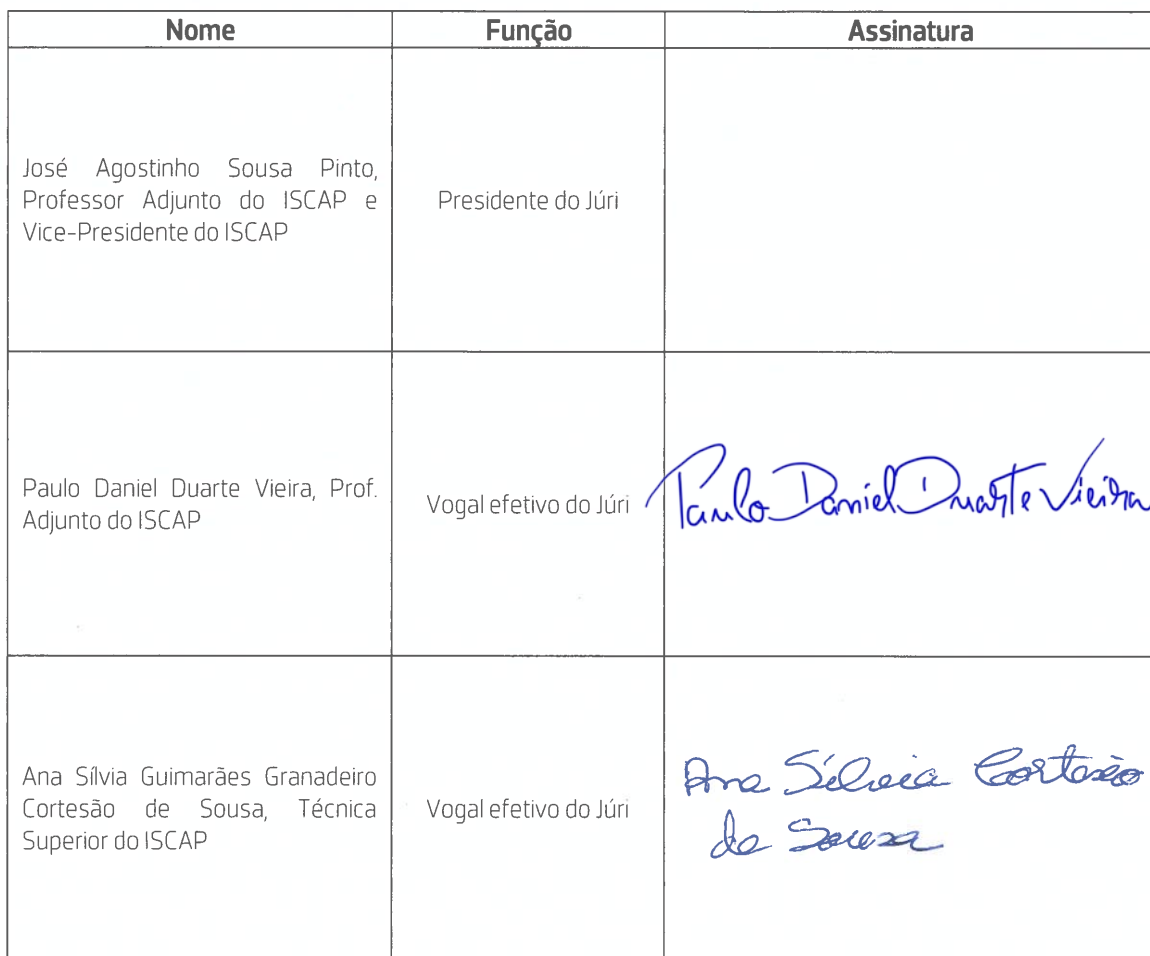 Nome Função Assinatura
José Agostinho Sousa Pinto,
Professor Adjunto do ISCAP e
Vice-Presidente do ISCAP
Presidente do Júri
Paulo Daniel Duarte Vieira, Prof.
Adjunto do ISCAP
Vogal efetivo do Júri
Paulo Daniel Duarte Vieira
Ana Sílvia Guimarães Granadeiro
Cortesão de Sousa, Técnica
Superior do ISCAP
Vogal efetivo do Júri
Ana Sílvia Cortesão
de Sousa